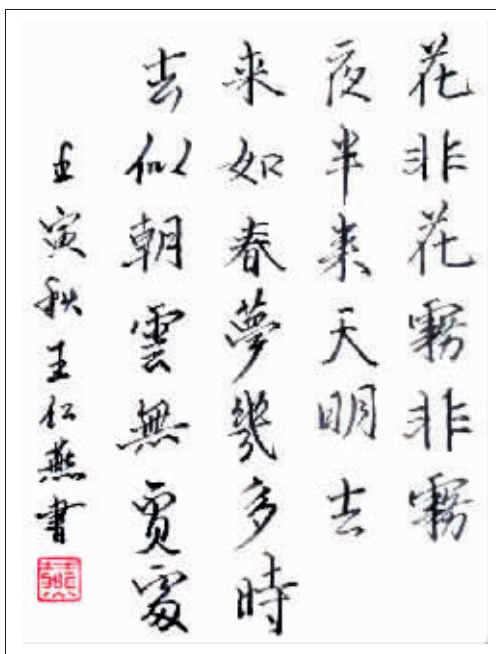 花非花霧非霧
夜半来天明去
来如春夢幾多時
去似朝雲無覓處
壬寅秋王仁燕書